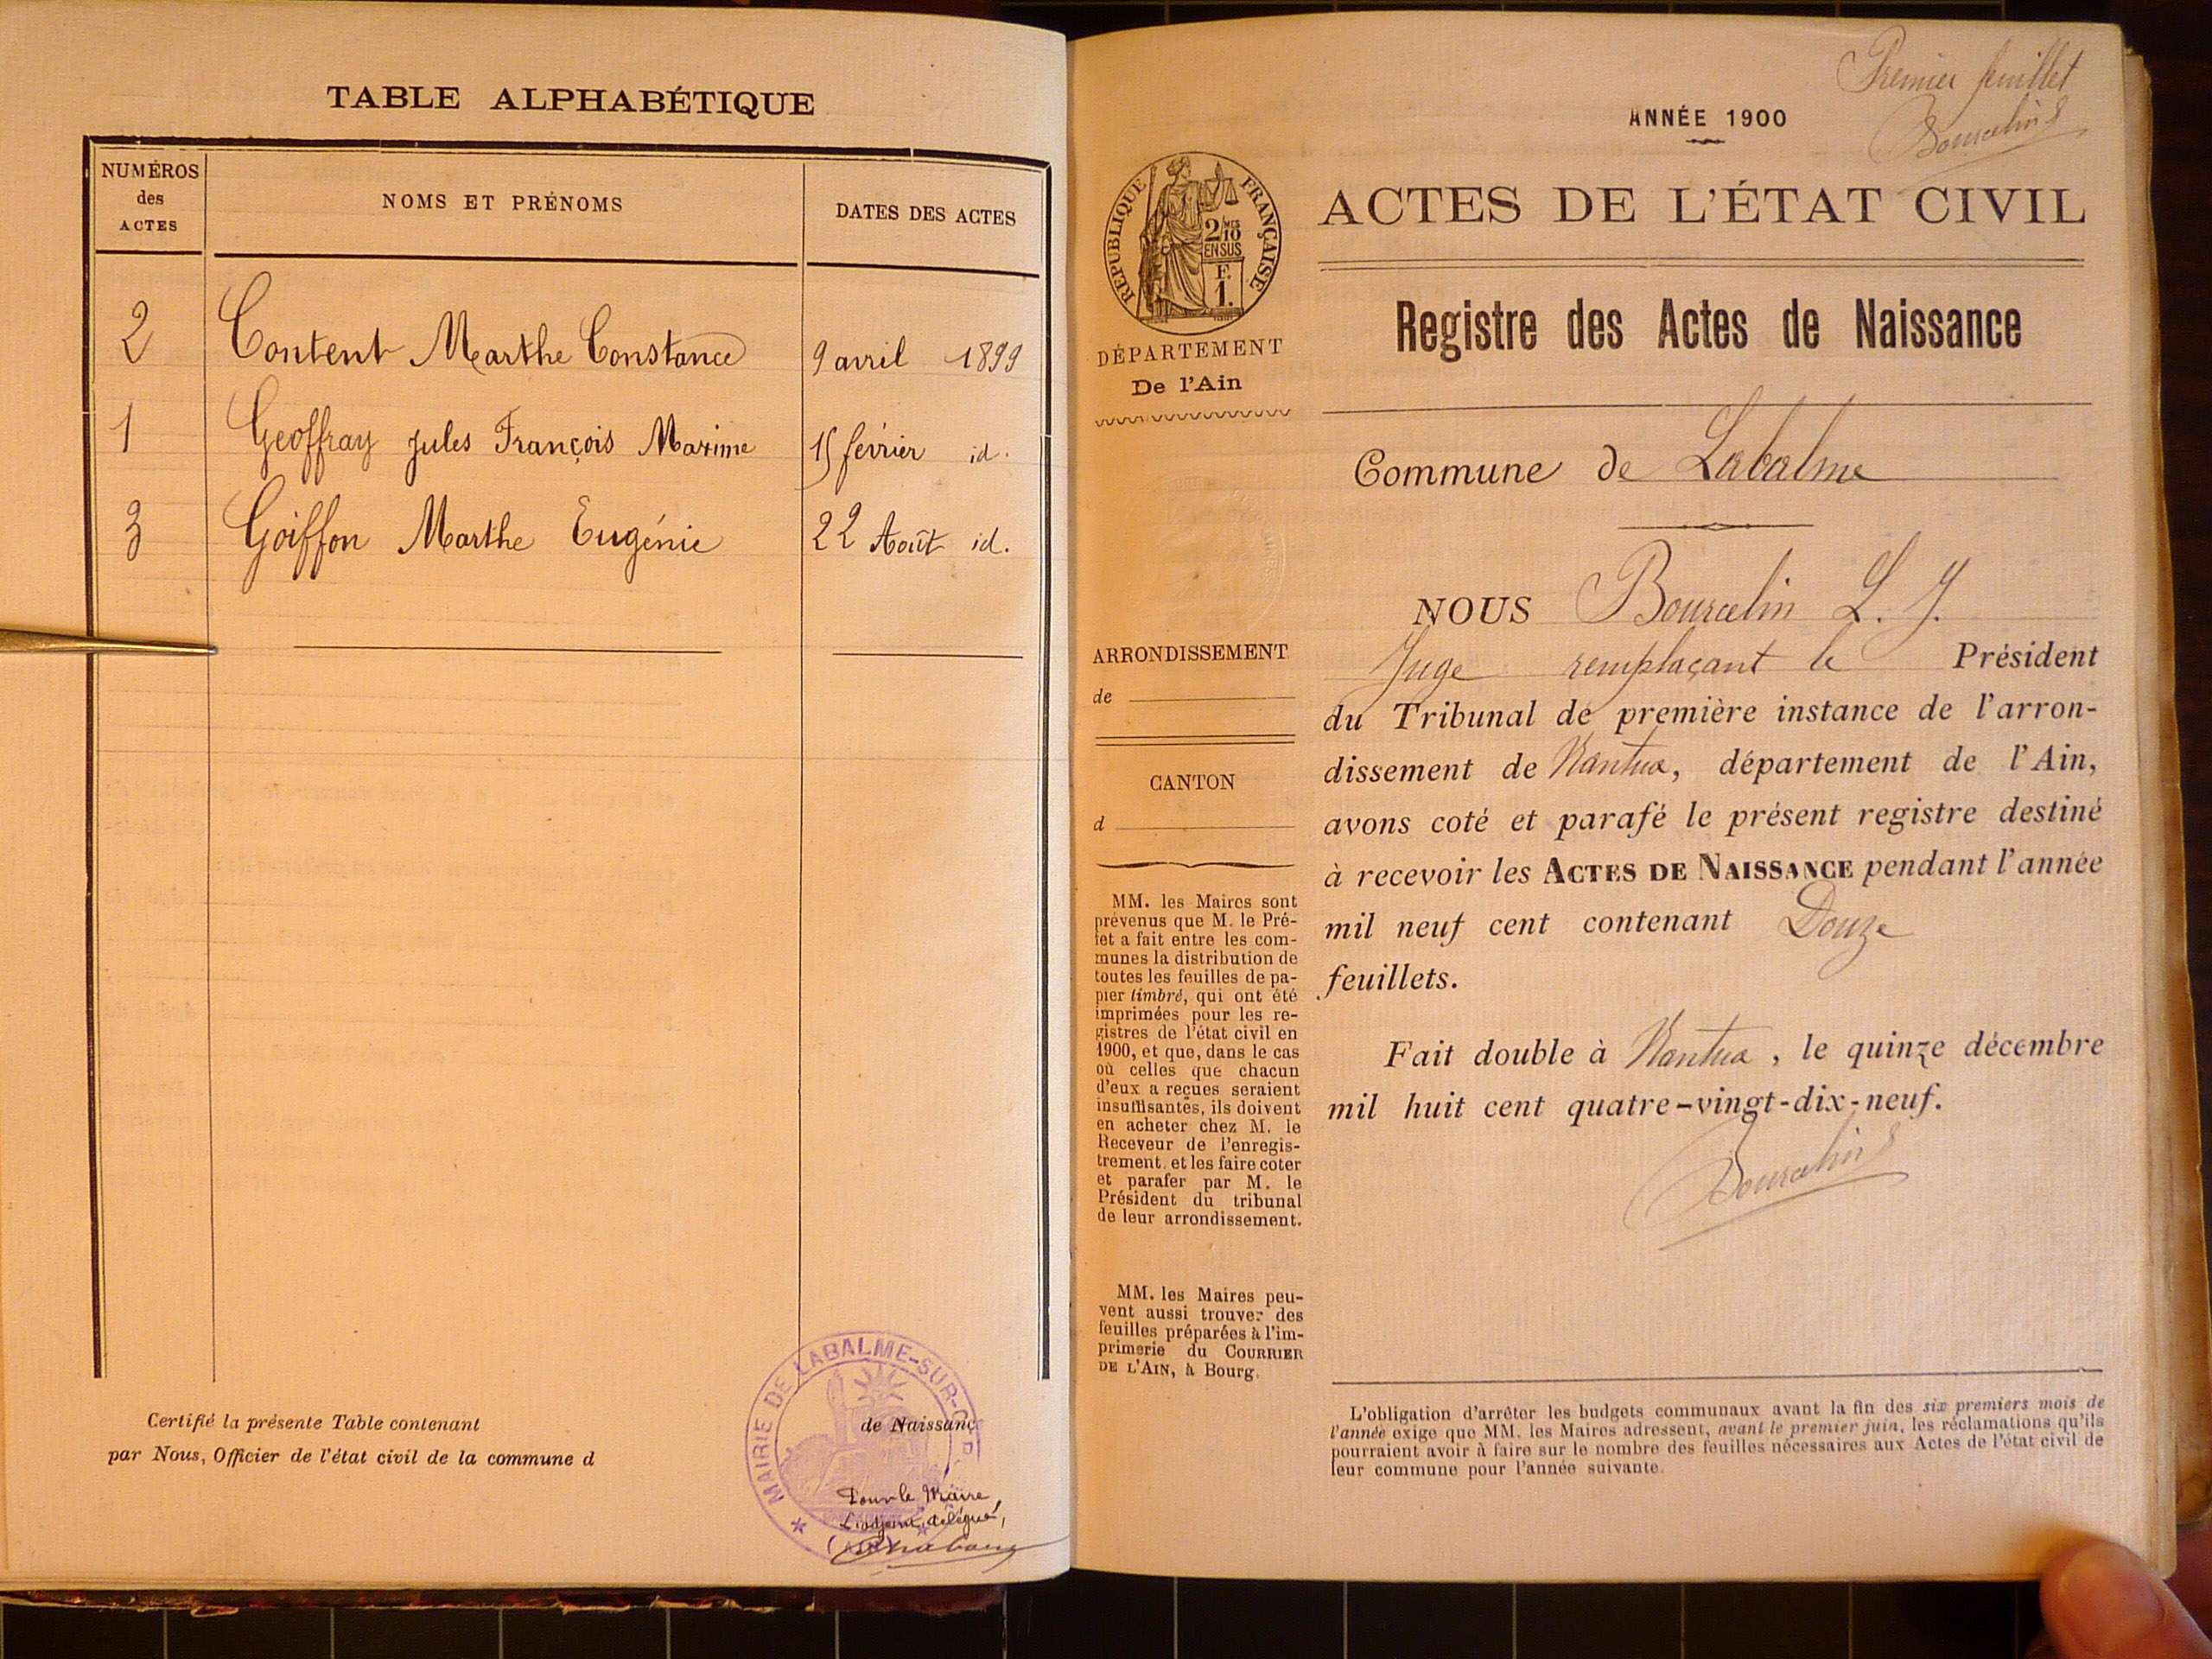 TABLE ALPHABÉTIQUE
NUMÉROS
des
ACTES
NOMS ET PRÉNOMS
DATES DES ACTES
2 Content Marthe Constance 9 avril 1899
1 Geoffray Jules François Maxime 15 février id.
3 Goiffon Marthe Eugénie 22 Août id.
Certifié la présente Table contenant de Naissance
par Nous, Officier de l'état civil de la commune d
MAIRIE DE LABALME-SUR-C
Pour le Maire
L'adjoint délégué,
Premier feuillet
Bourcelin
ANNÉE 1900
ACTES DE L'ÉTAT CIVIL
Registre des Actes de Naissance
RÉPUBLIQUE FRANÇAISE
2/10
EN SUS
F.
1.
DÉPARTEMENT
De l'Ain
Commune de Labalme
NOUS Bourcelin L. J.
Juge remplaçant le Président
du Tribunal de première instance de l'arron-
dissement de Nantua, département de l'Ain,
avons coté et parafé le présent registre destiné
à recevoir les ACTES DE NAISSANCE pendant l'année
mil neuf cent contenant Douze
feuillets.
Fait double à Nantua, le quinze décembre
mil huit cent quatre-vingt-dix-neuf.
Bourcelin
ARRONDISSEMENT
de
CANTON
d
MM. les Maires sont
prévenus que M. le Pré-
fet a fait entre les com-
munes la distribution de
toutes les feuilles de pa-
pier timbré, qui ont été
imprimées pour les re-
gistres de l'état civil en
1900, et que, dans le cas
où celles que chacun
d'eux a reçues seraient
insuffisantes, ils doivent
en acheter chez M. le
Receveur de l'enregis-
trement, et les faire coter
et parafer par M. le
Président du tribunal
de leur arrondissement.
MM. les Maires peu-
vent aussi trouver des
feuilles préparées à l'im-
primerie du COURRIER
DE L'AIN, à Bourg.
L'obligation d'arrêter les budgets communaux avant la fin des six premiers mois de
l'année exige que MM. les Maires adressent, avant le premier juin, les réclamations qu'ils
pourraient avoir à faire sur le nombre des feuilles nécessaires aux Actes de l'état civil de
leur commune pour l'année suivante.